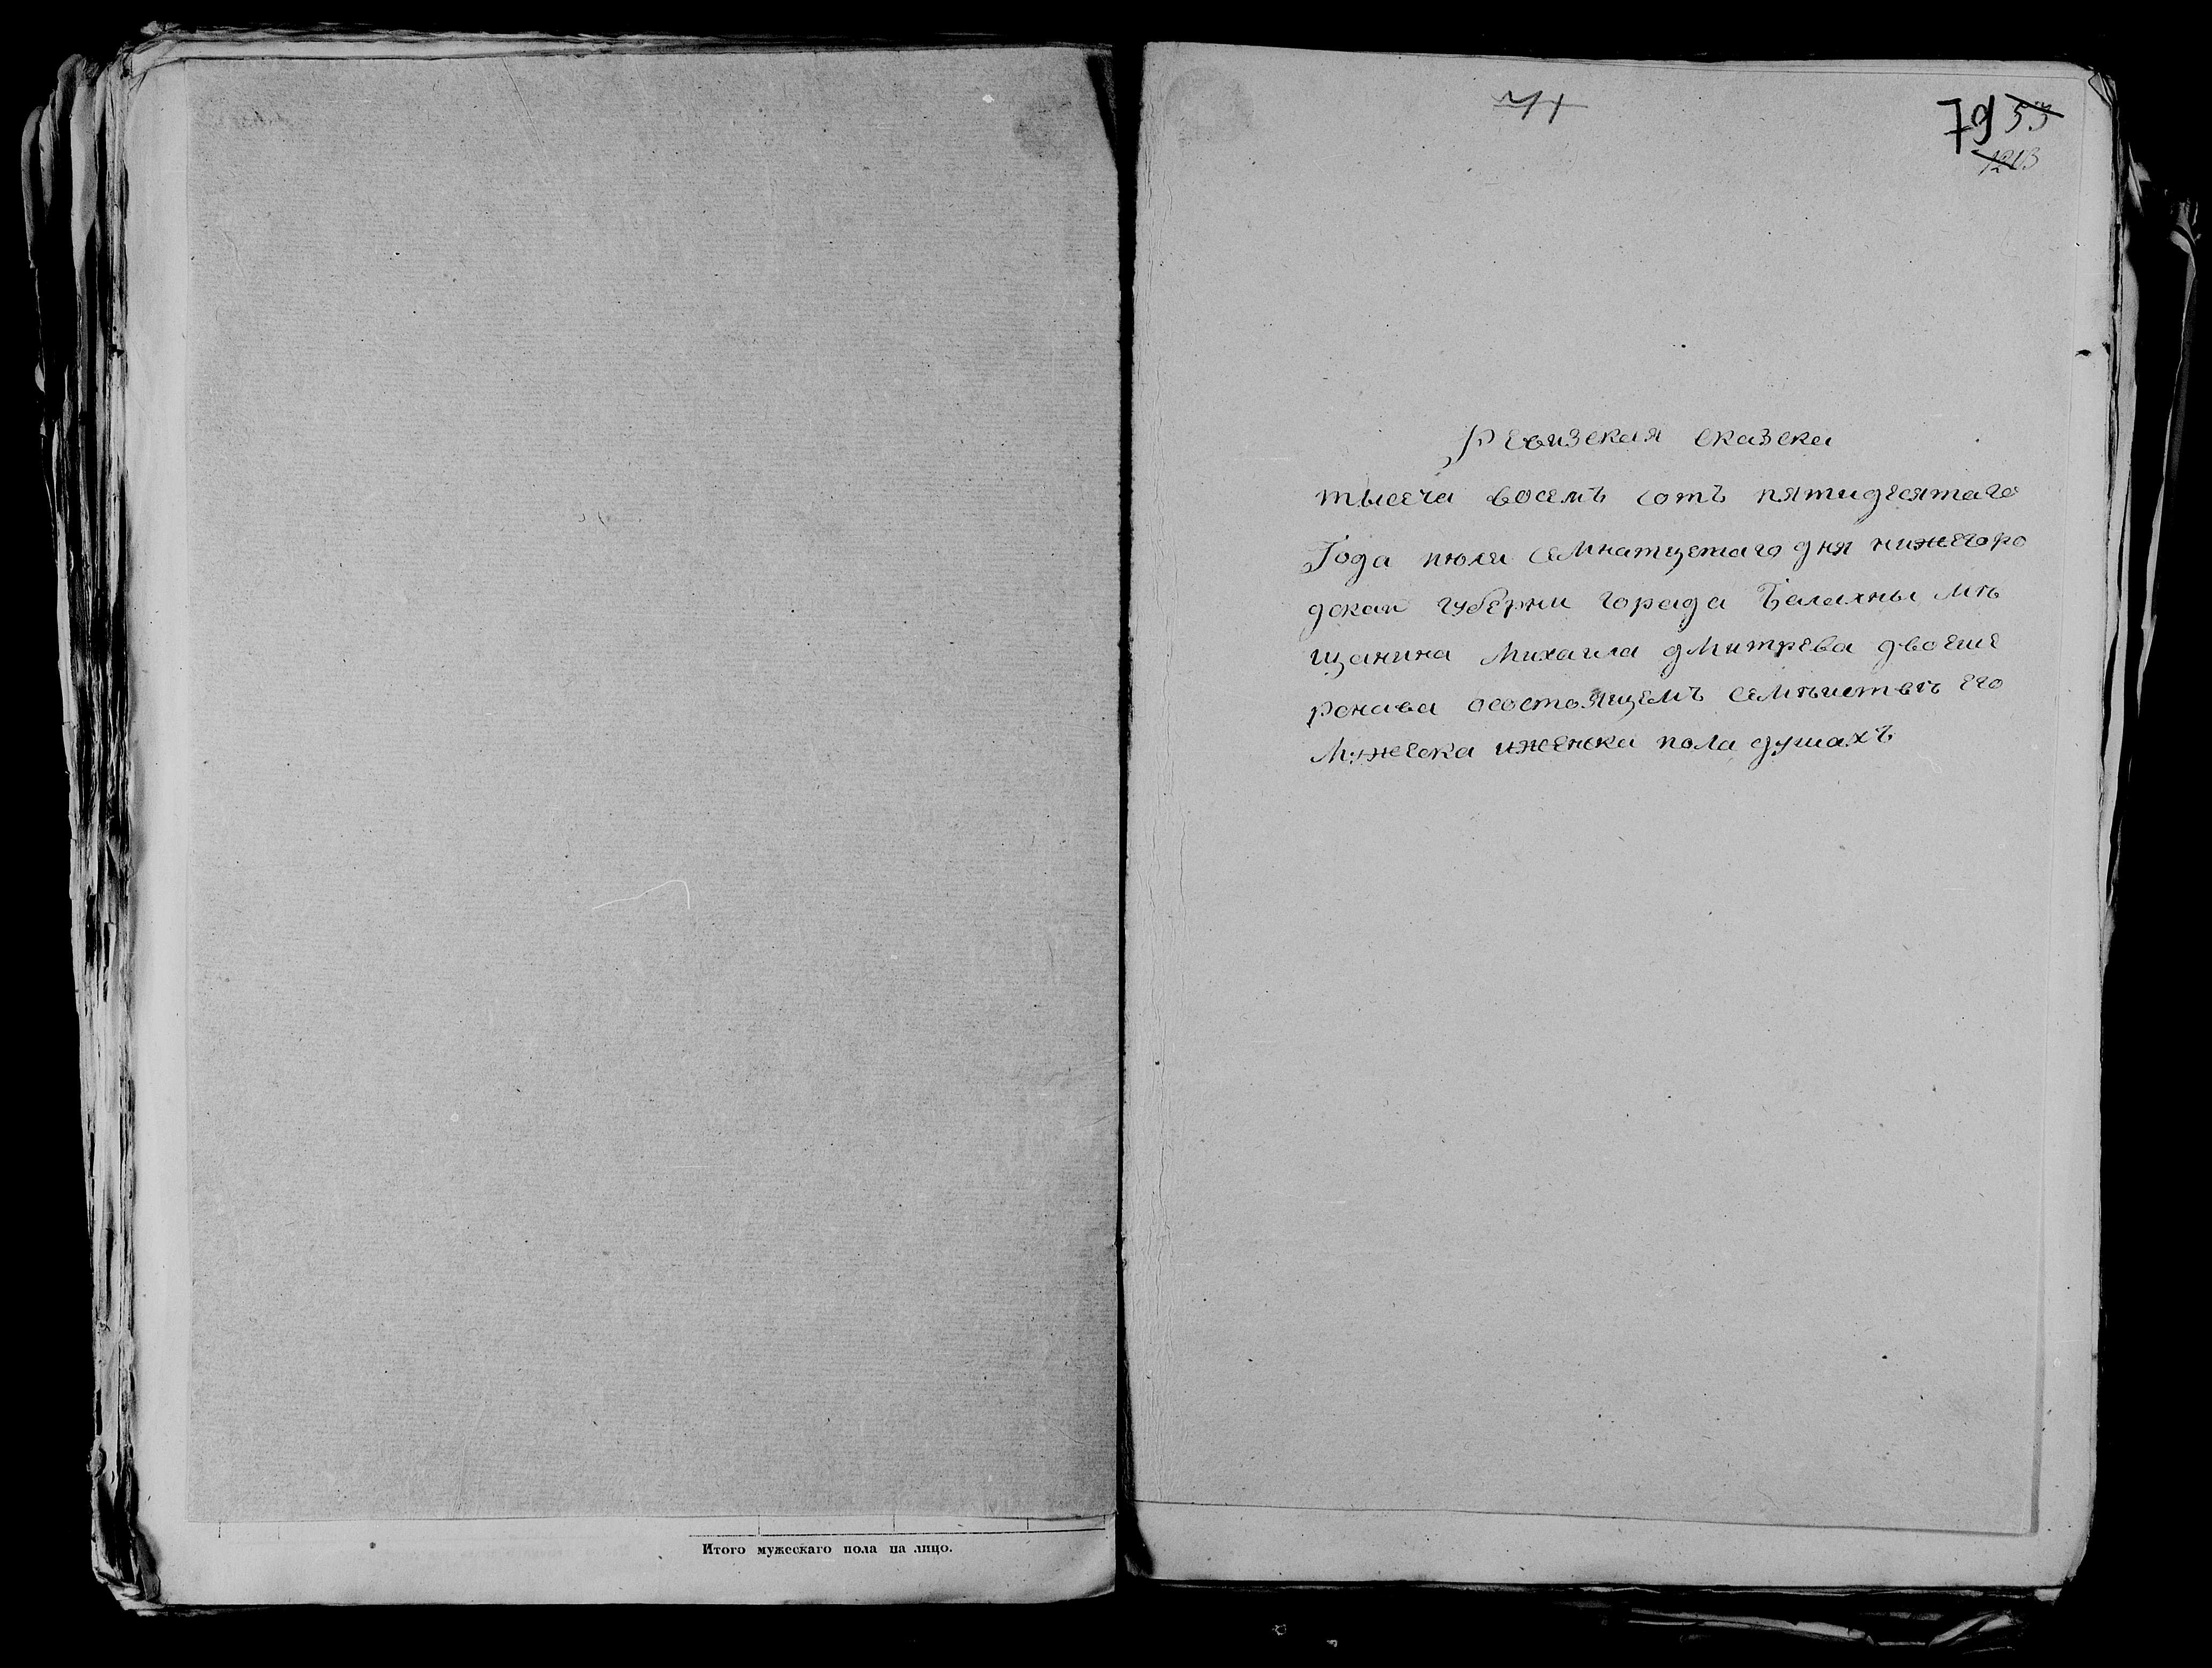 Итого мужескаго пола на лицо.
79 53
Ревизская сказска
тысеча восемъ сотъ пятидесятаго
Года июля семнатцетаго дня нижегоро
дскай губерни горада Балахны мѣ
щанина Михаила дмитрева двоеше
рснава осостоящемъ семѣистве его
Мужеска иженска пола душахъ